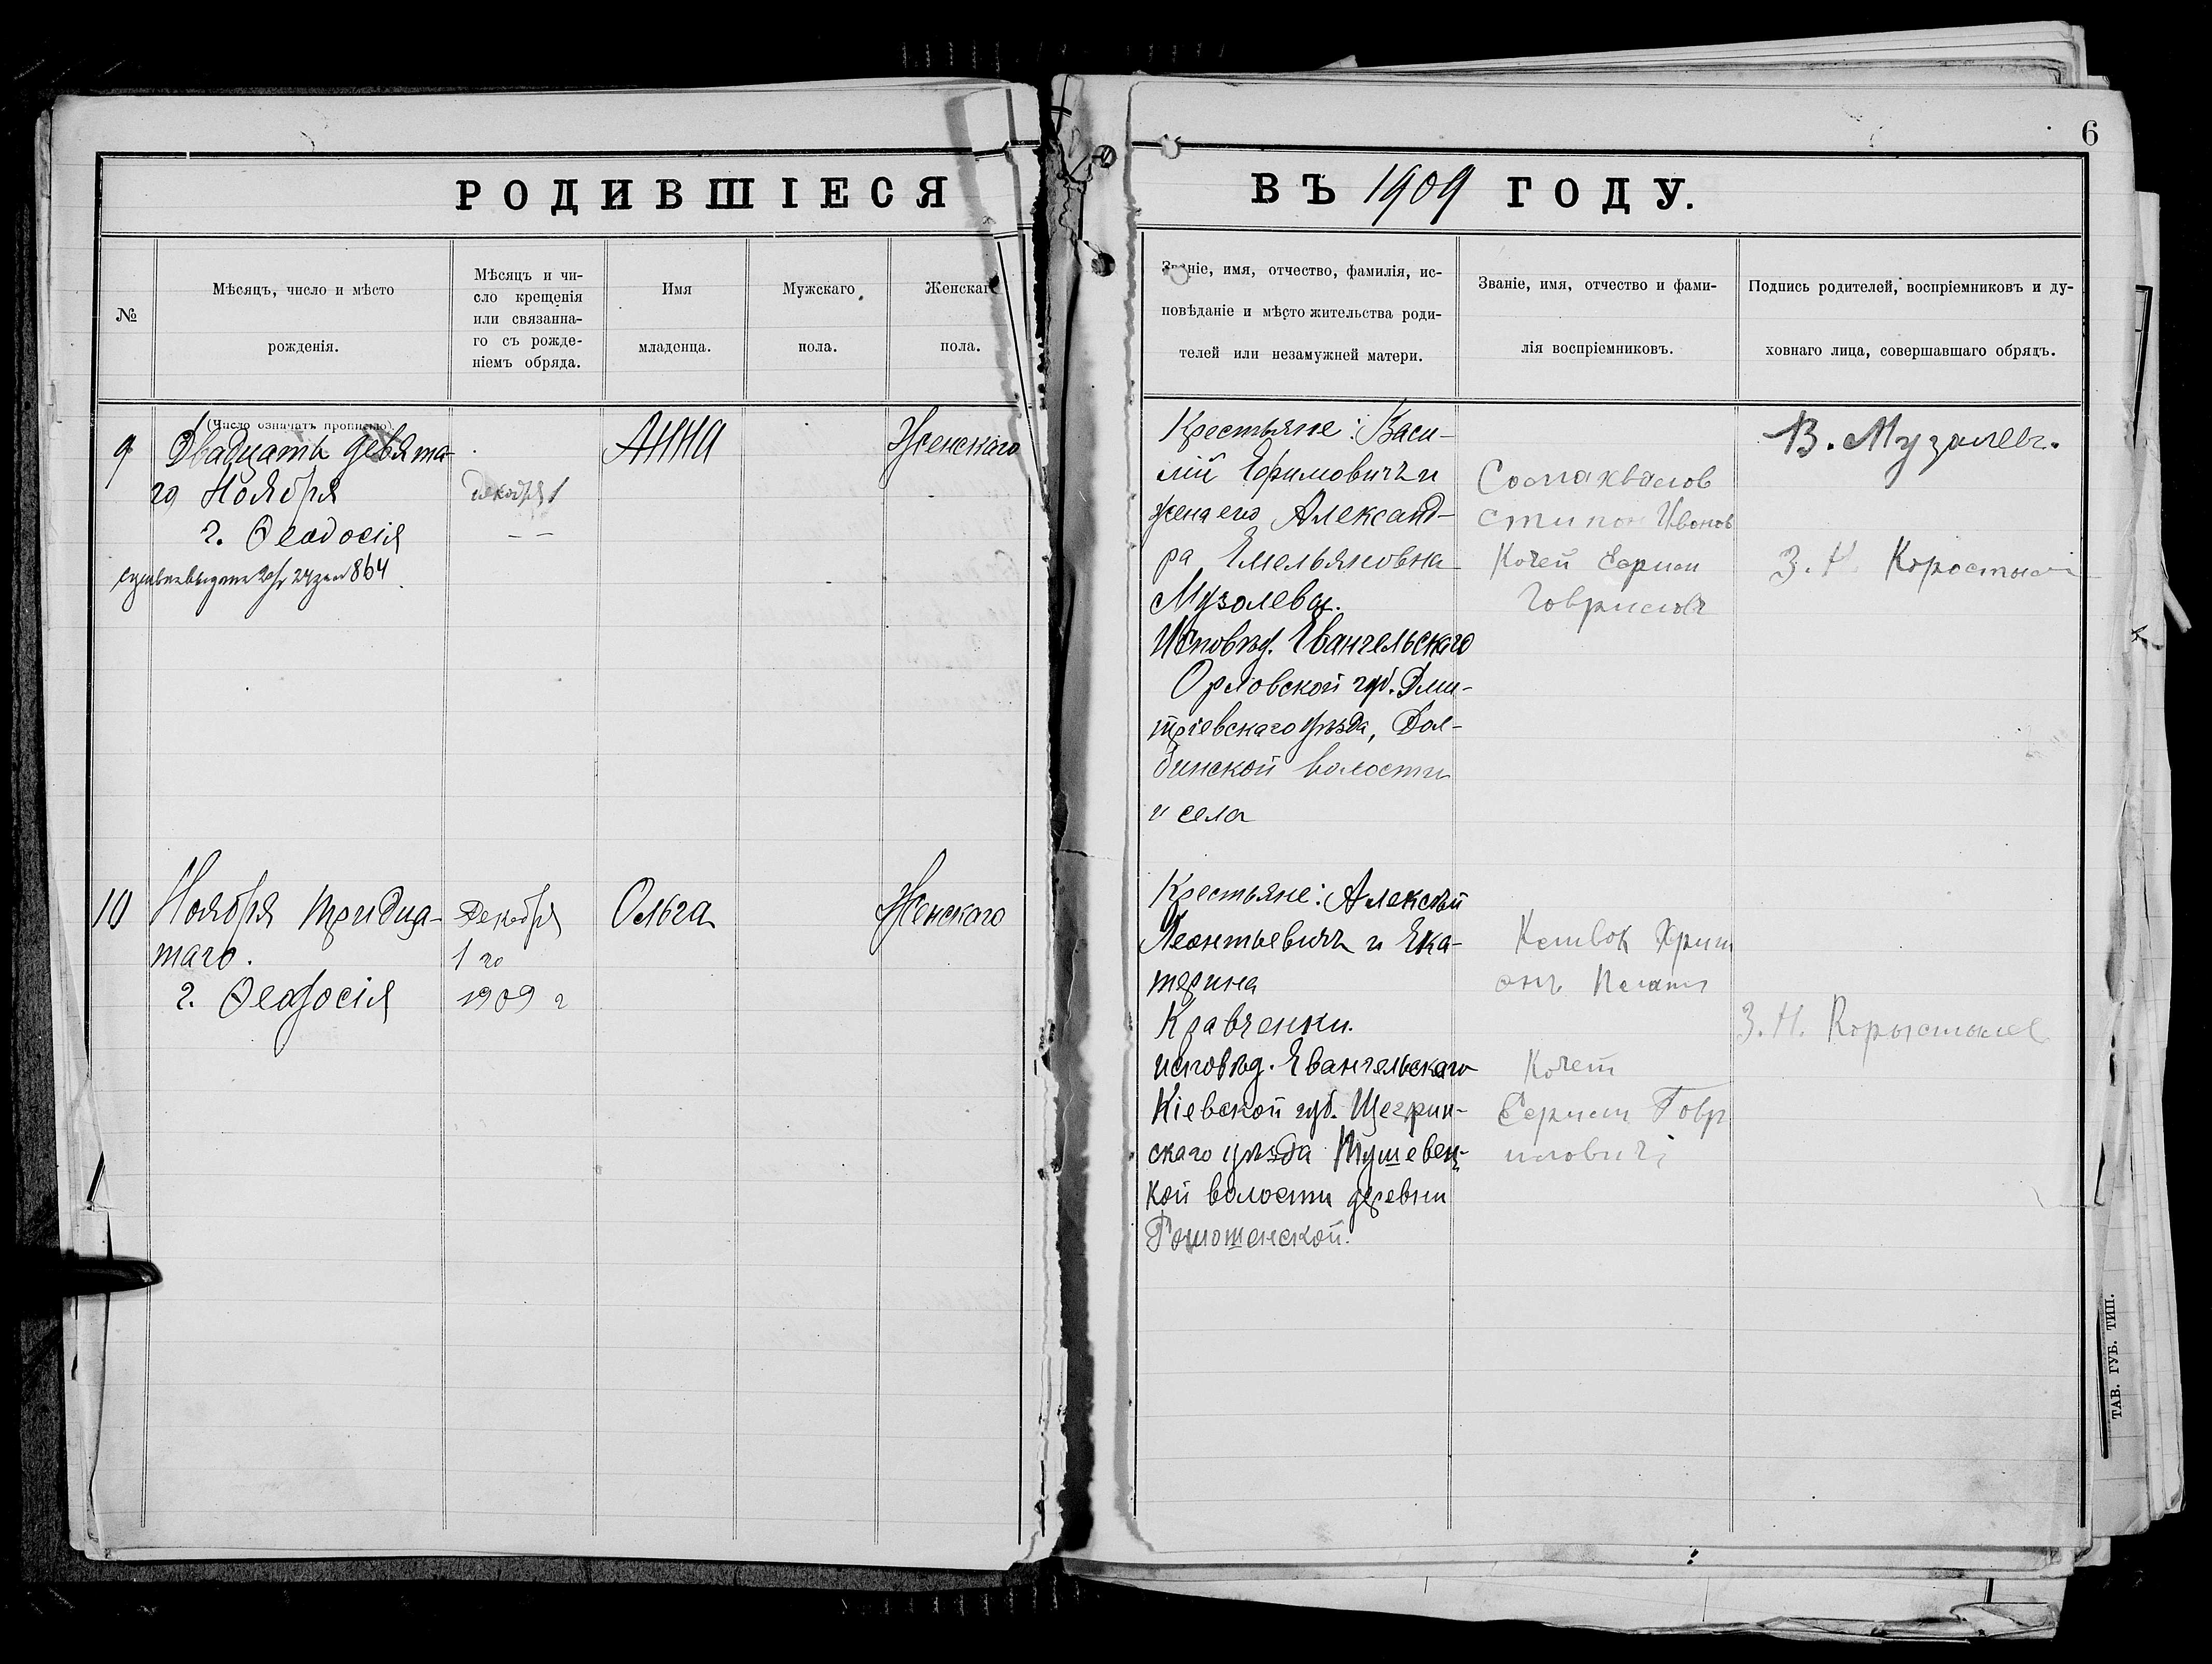 6
РОДИВШІЕСЯ
ВЪ 1909 ГОДУ.
№
Мѣсяцъ, число и мѣсто
рожденія.
Мѣсяцъ и чи-
сло крещенія
или связанна-
го съ рожде-
ніемъ обряда.
Имя
младенца.
Мужскаго
пола.
Женскаго
пола.
Званіе, имя, отчество, фамилія, ис-
повѣданіе и мѣсто жительства роди-
телей или незамужней матери.
Званіе, имя, отчество и фами-
лія воспріемниковъ.
Подпись родителей, воспріемниковъ и ду-
ховнаго лица, совершавшаго обрядъ.
(Число означать прописью).
9
Двадцать девята-
го Ноября
г. Ѳеодосія
864
декабря 1
АННА
Женскаго
Крестьяне: Васи-
лій Ефимовичъ и
жена его Александ-
ра Емельяновна
Музолевы.
Исповѣд. Евангельскаго
Орловской губ. Дми-
тріевскаго уѣзда, Дол-
бинской волости
и села
Иванов
Кочет
В. Музалевъ.
З. Н.
10
Ноября тридца-
таго.
г. Ѳеодосія
Декабря
1 го
1909 г
Ольга
Женскаго
Крестьяне: Алексѣй
Леонтьевичъ и Ека-
терина
Кравченки.
исповѣд. Евангельскаго
Кіевской губ. Щегрин-
скаго уѣзда
кой волости деревни
Кочет
Говр
иловичі
З. Н.
ТАВ. ГУБ. ТИП.